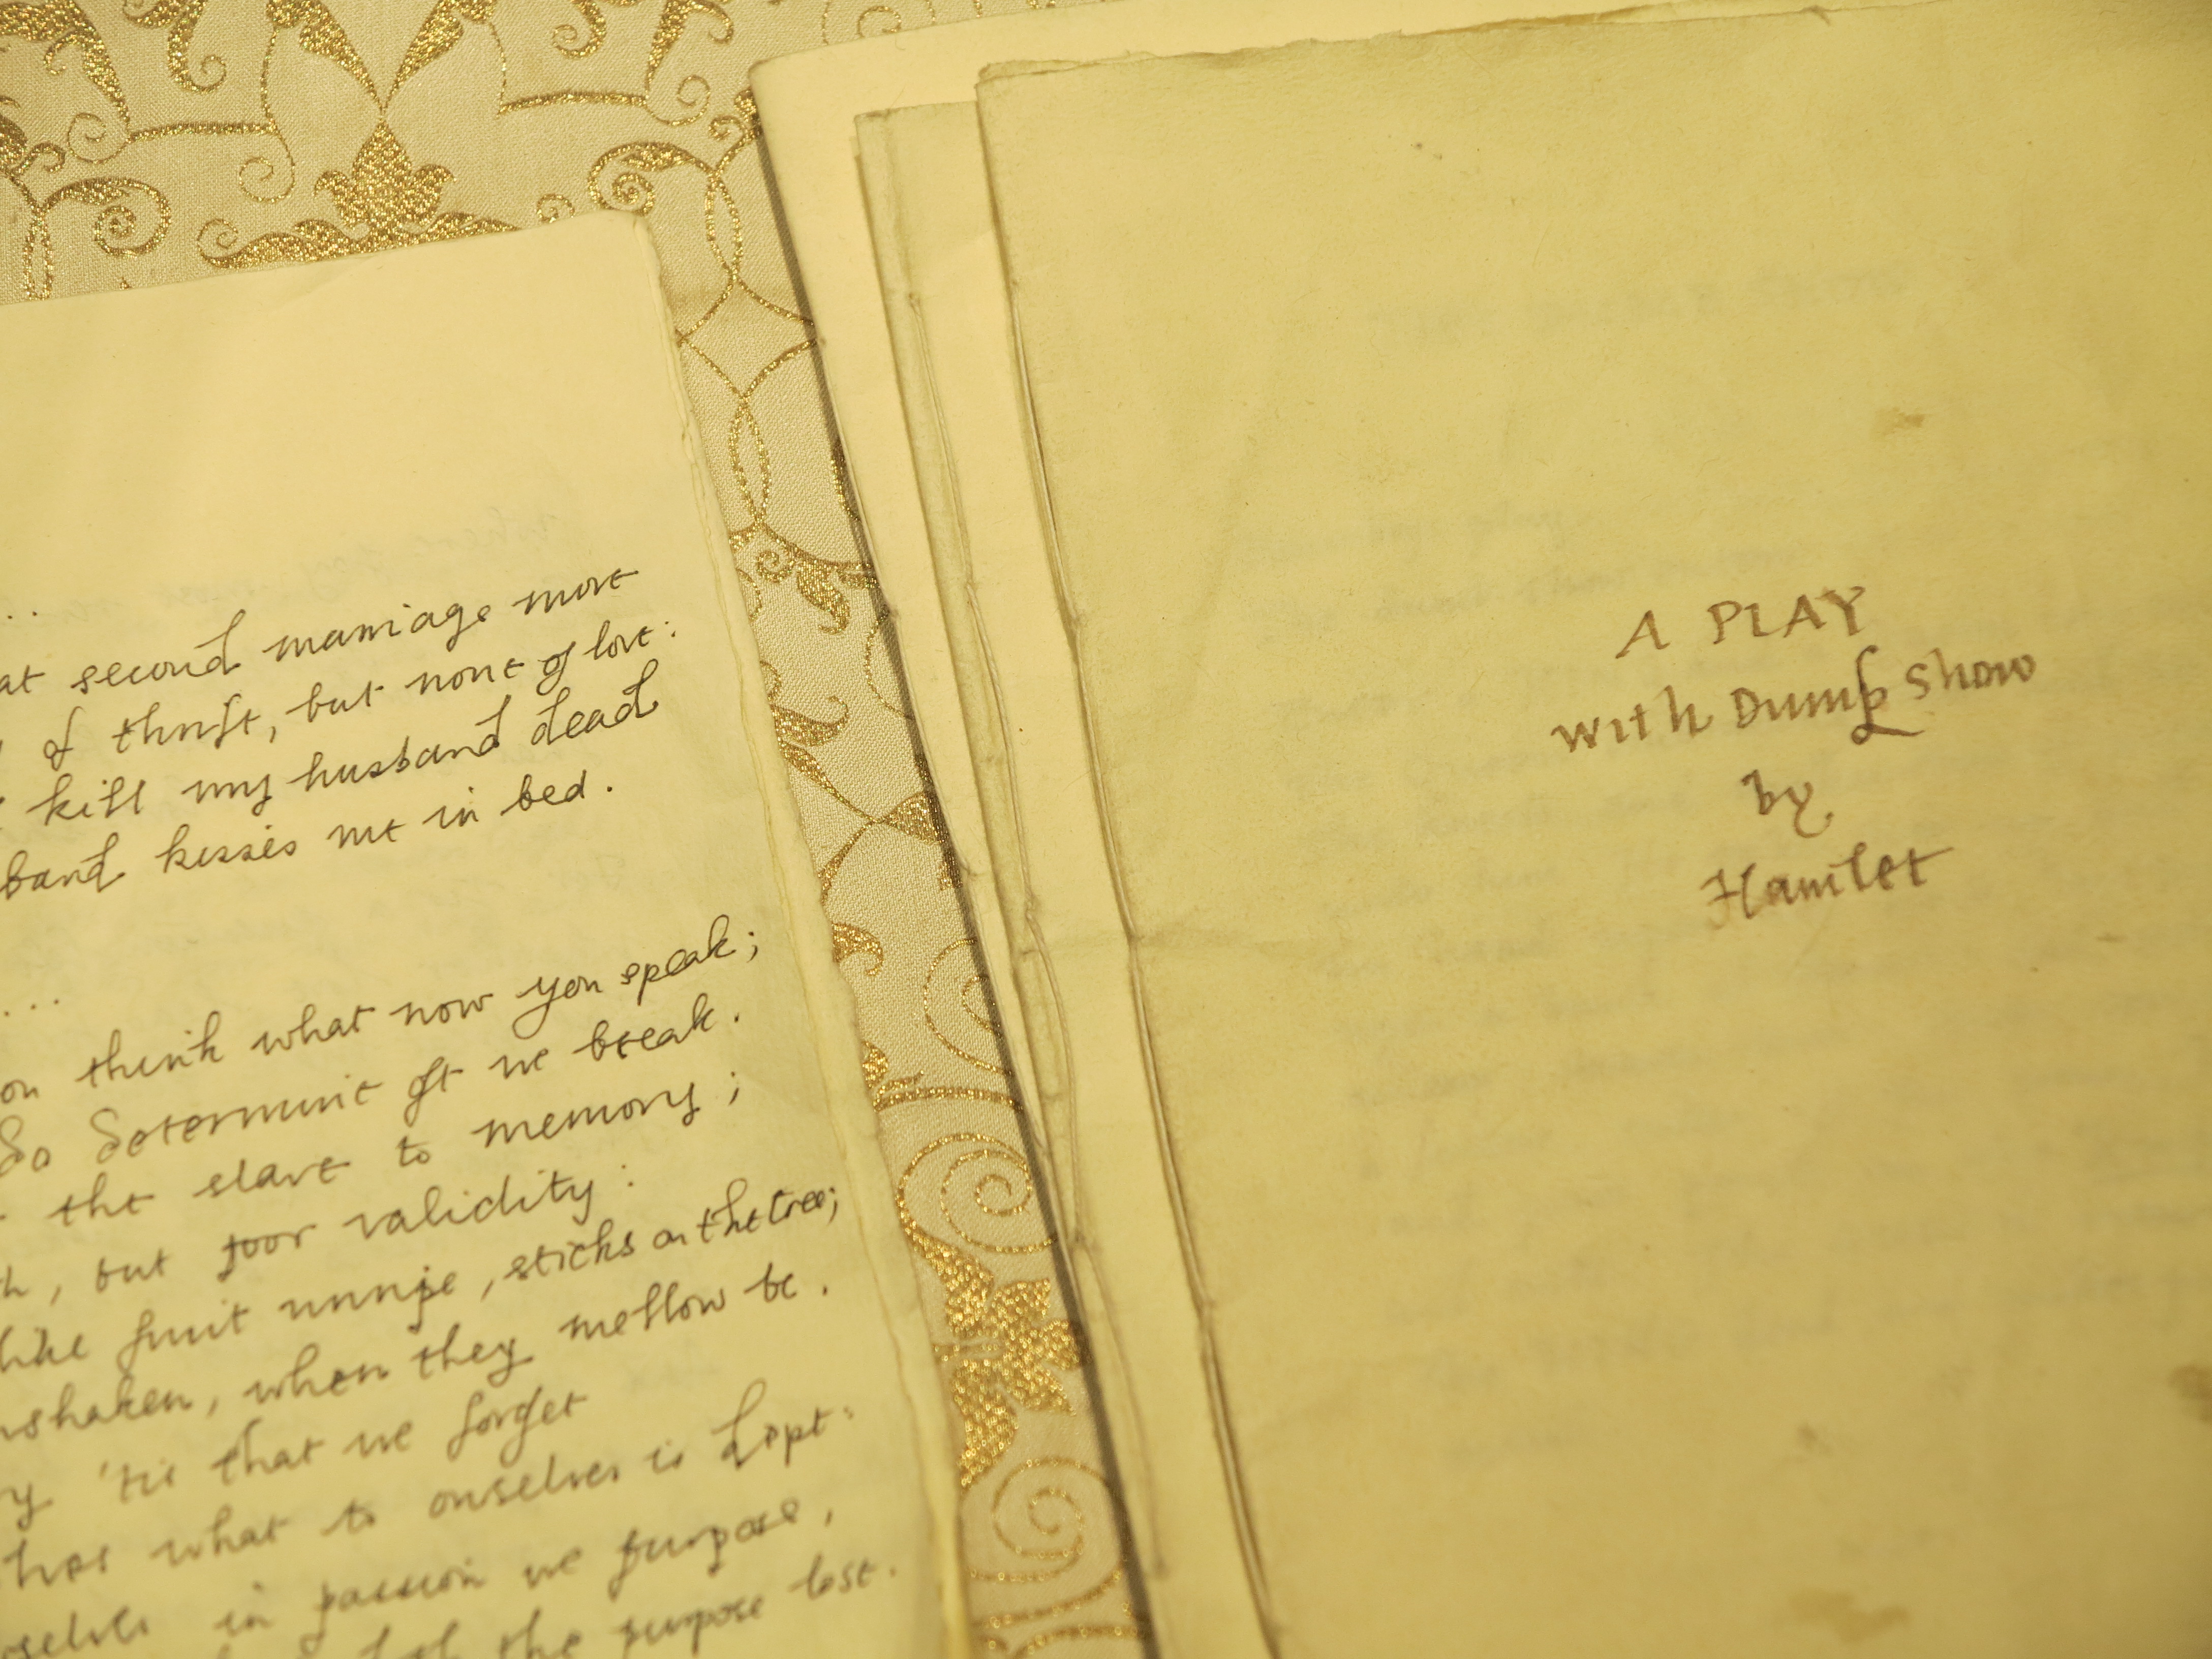 ...
at second marriage move
of thrift, but none of love:
kill my husband dead
band kisses me in bed.
...
on think what now you speak;
do determine oft we break.
the slave to memory;
h, but poor validity:
like fruit unripe, sticks on the tree;
nshaken, when they mellow be.
ry 'tis that we forget
what to ourselves is dept:
selves in passion we purpose,
the purpose lost.
A PLAY
with Dump Show
by
Hamlet